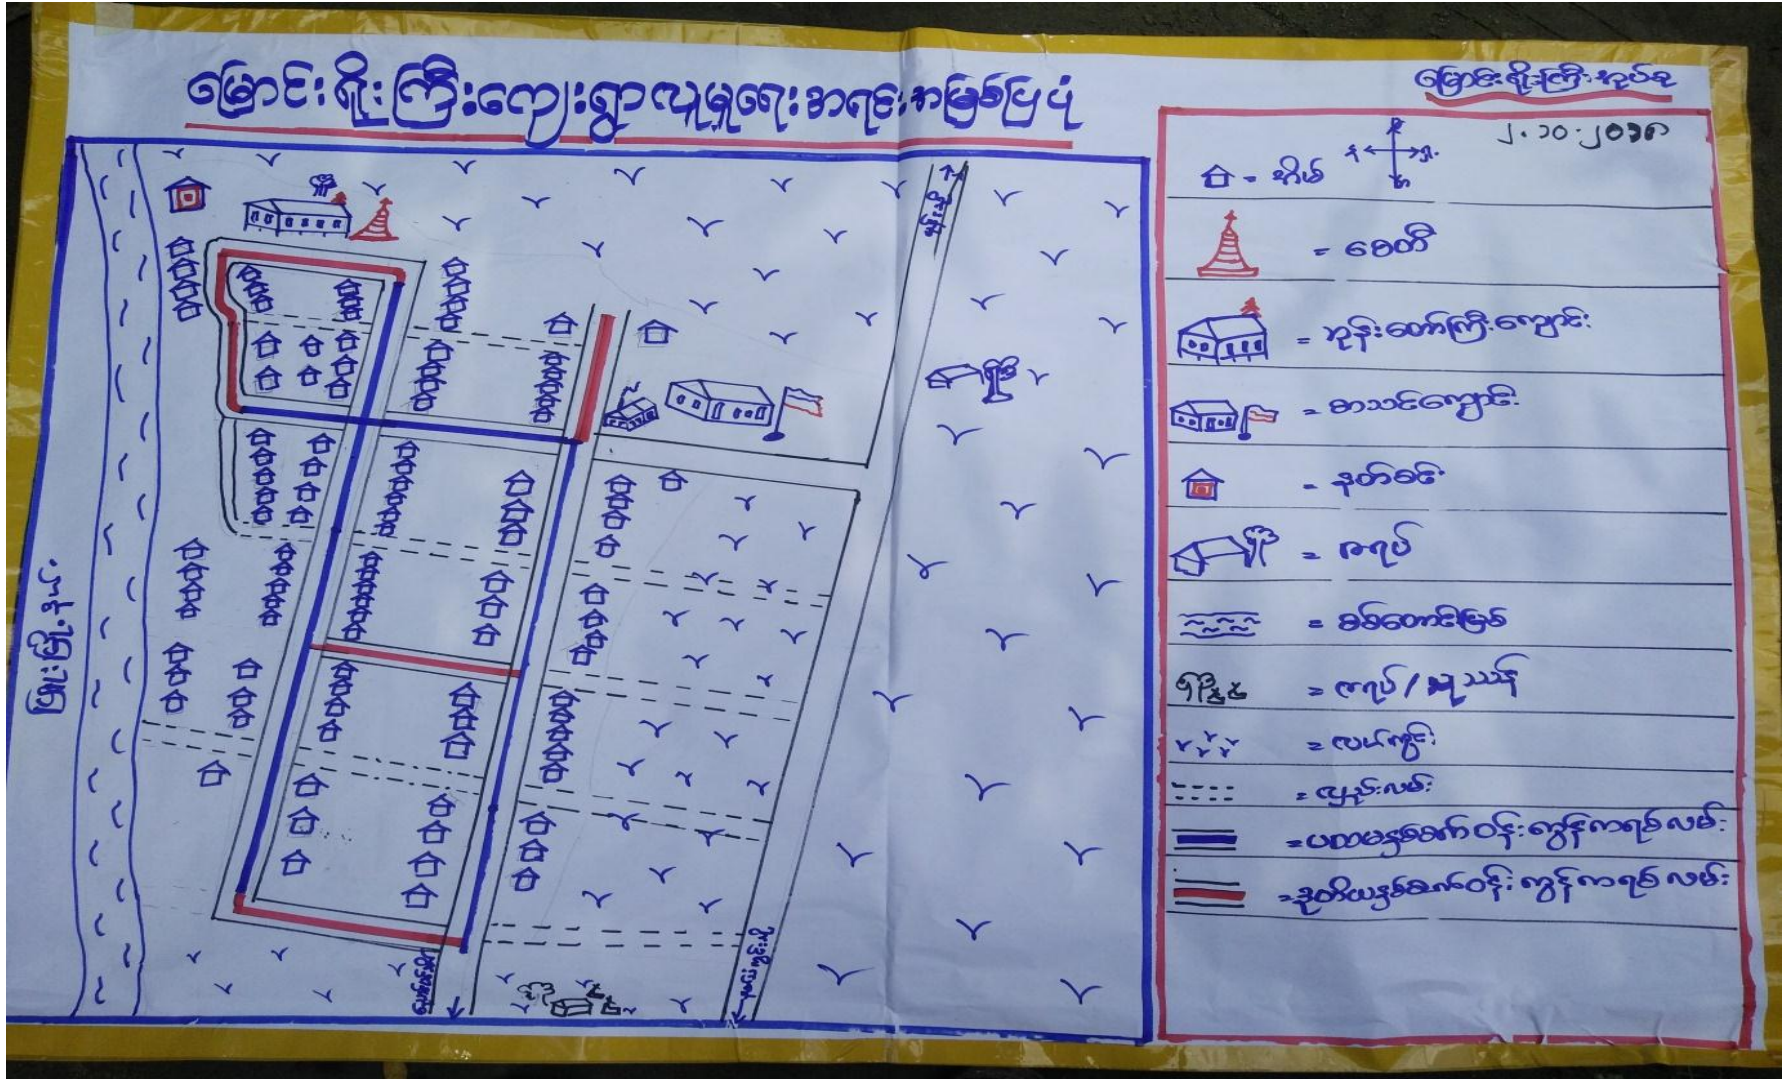 မြောင်းရိုးကြီးကျေးရွာလူမှုရေးအရင်းအမြစ်ပြပုံ
မြောင်းရိုးကြီးအုပ်စု
၂.၁၀.၂၀၁၈
= အိမ်
= စေတီ
= ဘုန်းတော်ကြီးကျောင်း
= စာသင်ကျောင်း
= နတ်စင်
= ဇရပ်
= စစ်တောင်းမြစ်
= ဇရပ် / သုသာန်
= လယ်ကွင်း
= လှည်းလမ်း
= ပထမနှစ်ခင်း ကွန်ကရစ်လမ်း
= ဒုတိယနှစ် ကွန်ကရစ်လမ်း
ဖြူးမြို့နယ်